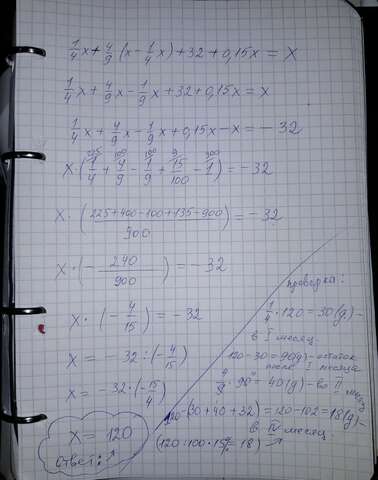 1/4 x + 4/9 (x - 1/4 x) + 32 + 0,15x = x
1/4 x + 4/9 x - 1/9 x + 32 + 0,15x = x
1/4 x + 4/9 x - 1/9 x + 0,15x - x = - 32
x · (1/4 + 4/9 - 1/9 + 15/100 - 1) = - 32
x · (225+400-100+135-900 / 900) = - 32
x · (- 240/900) = - 32
x · (- 4/15) = - 32
x = - 32 : (- 4/15)
x = - 32 · (-15/4)
x = 120
ответ: ↑
проверка:
1/4 · 120 = 30 (д) -
в I месяц.
120 - 30 = 90(д) - остаток
после I месяца
4/9 · 90 = 40(д) - во II
месяц
120-(30 + 40 + 32) = 120 - 102 = 18(д) -
в IV месяц
(120 : 100 · 15 = 18)